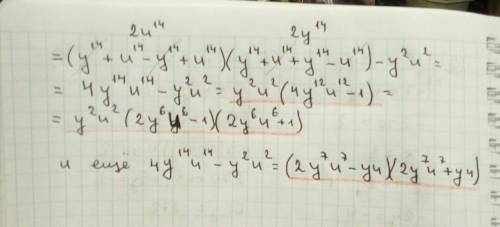 2u¹⁴ 2y¹⁴
=(y¹⁴+u¹⁴-y¹⁴+u¹⁴)(y¹⁴+u¹⁴+y¹⁴-u¹⁴)-y²u²=
= 4y¹⁴u¹⁴-y²u²= y²u²(4y¹²u¹²-1) =
= y²u²(2y⁶u⁶-1)(2y⁶u⁶+1)
и ещё 4y¹⁴u¹⁴-y²u²=(2y⁷u⁷-yu)(2y⁷u⁷+yu)